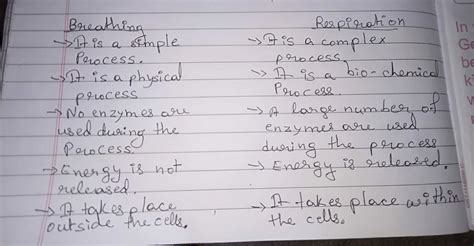 Breathing
→ It is a simple
Process.
→ It is a physical
process
→ No enzymes are
used during the
Process.
→ Energy is not
released.
→ It takes place
outside the cells.
Respiration
→ It is a complex
process
→ It is a bio-chemical
Process.
→ A large number of
enzymes are used
during the process
→ Energy is released.
→ It takes place within
the cells.
In